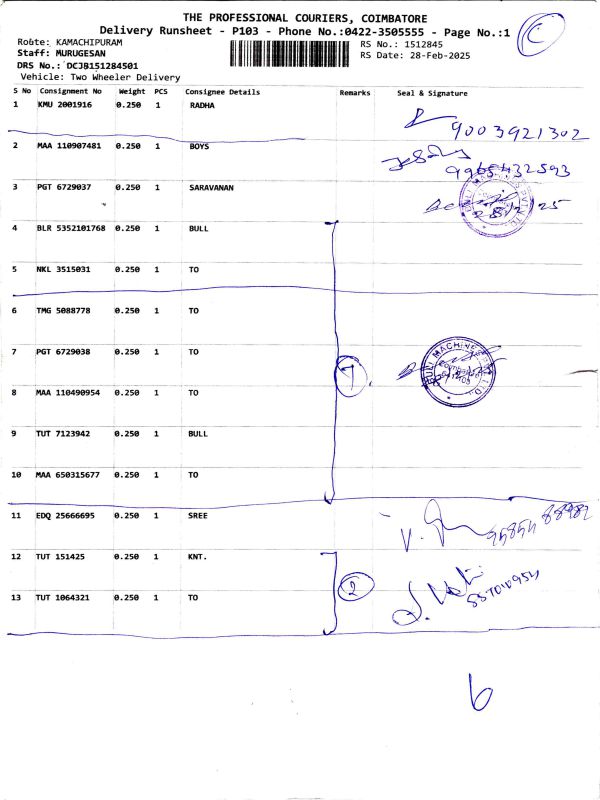 THE PROFESSIONAL COURIERS, COIMBATORE
Delivery Runsheet - P103 - Phone No.:0422-3505555 - Page No.:1
C
Route: KAMACHIPURAM
RS No.: 1512845
Staff: MURUGESAN
RS Date: 28-Feb-2025
DRS No.: DCJB151284501
Vehicle: Two Wheeler Delivery
S No Consignment No Weight PCS Consignee Details Remarks Seal & Signature
1 KMU 2001916 0.250 1 RADHA
9003921302
2 MAA 110907481 0.250 1 BOYS
9965432593
3 PGT 6729037 0.250 1 SARAVANAN
4 BLR 5352101768 0.250 1 BULL
5 NKL 3515031 0.250 1 TO
6 TMG 5088778 0.250 1 TO
7 PGT 6729038 0.250 1 TO
7
8 MAA 110490954 0.250 1 TO
9 TUT 7123942 0.250 1 BULL
10 MAA 650315677 0.250 1 TO
11 EDQ 25666695 0.250 1 SREE
12 TUT 151425 0.250 1 KNT.
2
13 TUT 1064321 0.250 1 TO
6